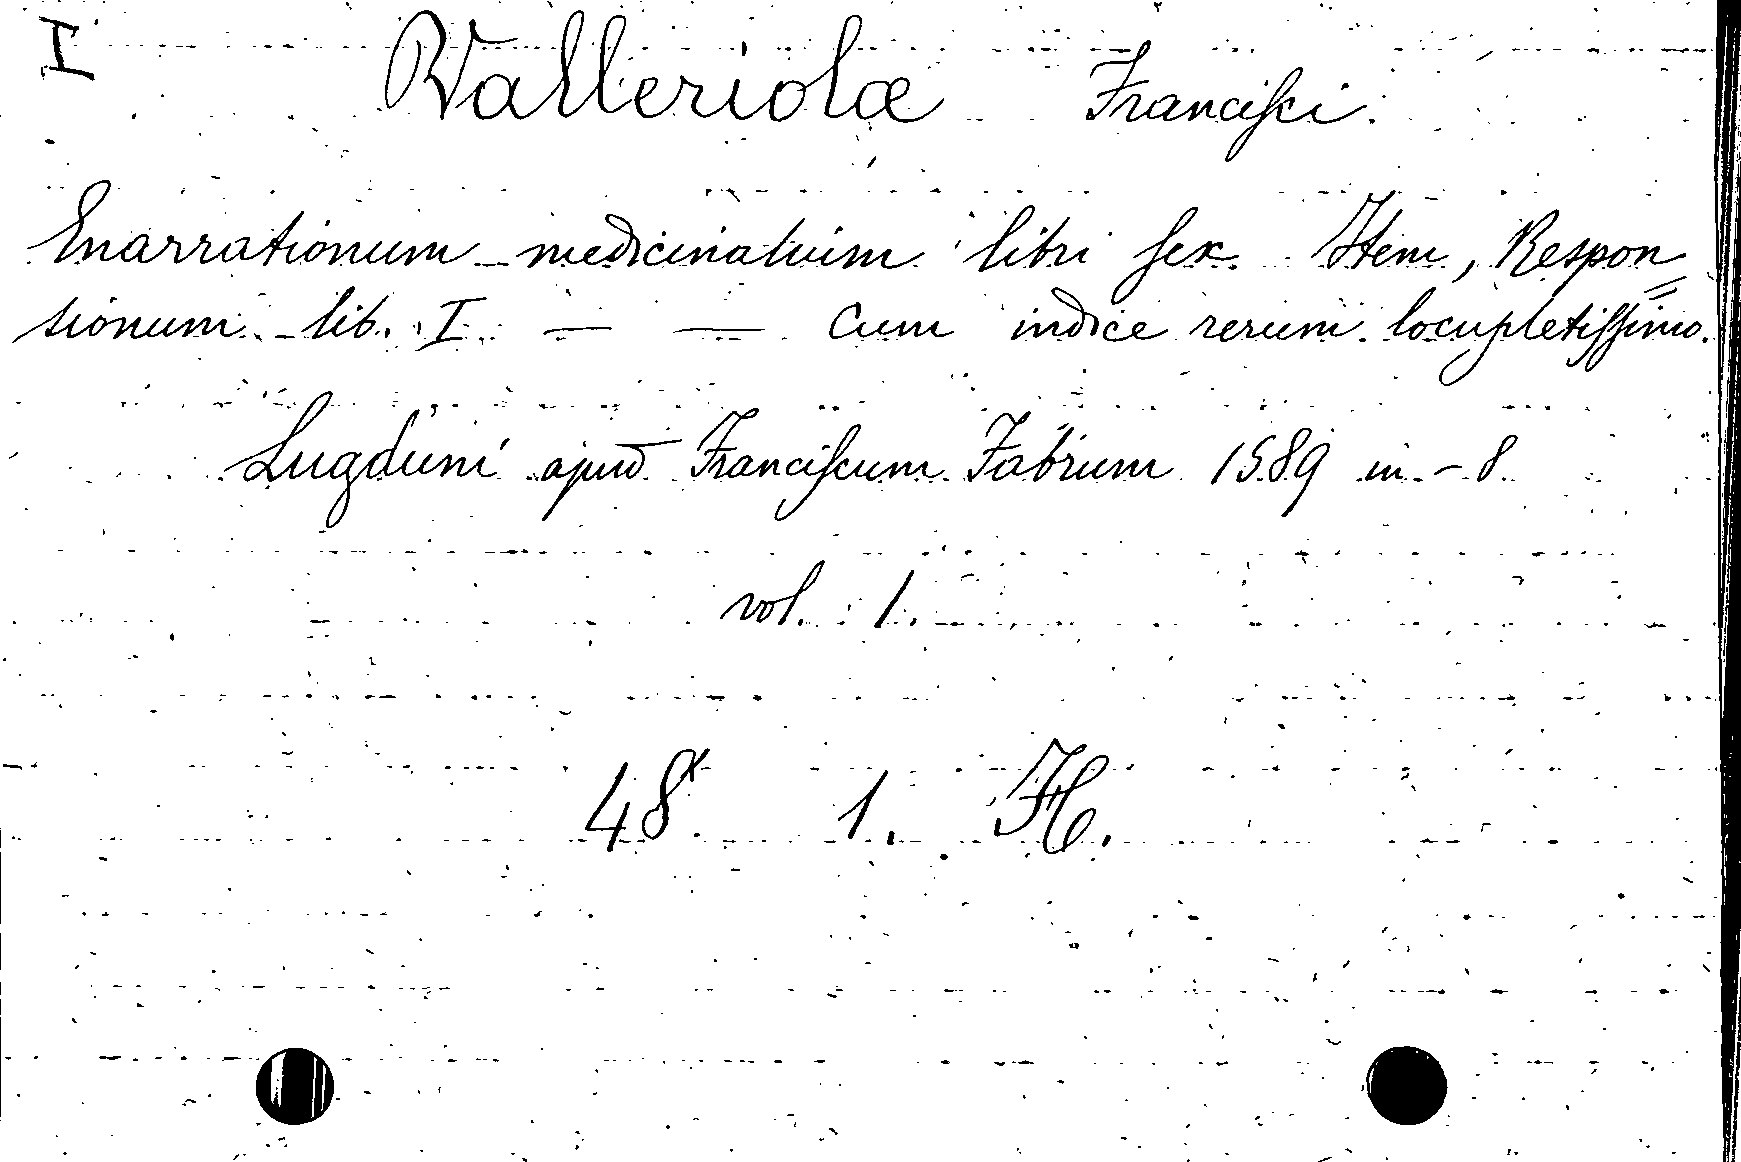 I Valleriolæ Franciſci.
Enarrationum medicinalium libri ſex. Item, Respon=
sionum lib. I. — — Cum indice rerum locupletiſſimo.
Lugduni apud Franciſcum Fabrum 1589 in-8
vol. 1.
48 1. H.